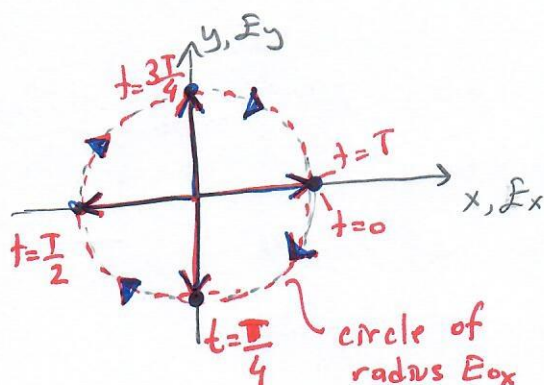 y, Ey
t=3T/4
t=T
x, Ex
t=0
t=T/2
t=T/4
circle of
radius Eox